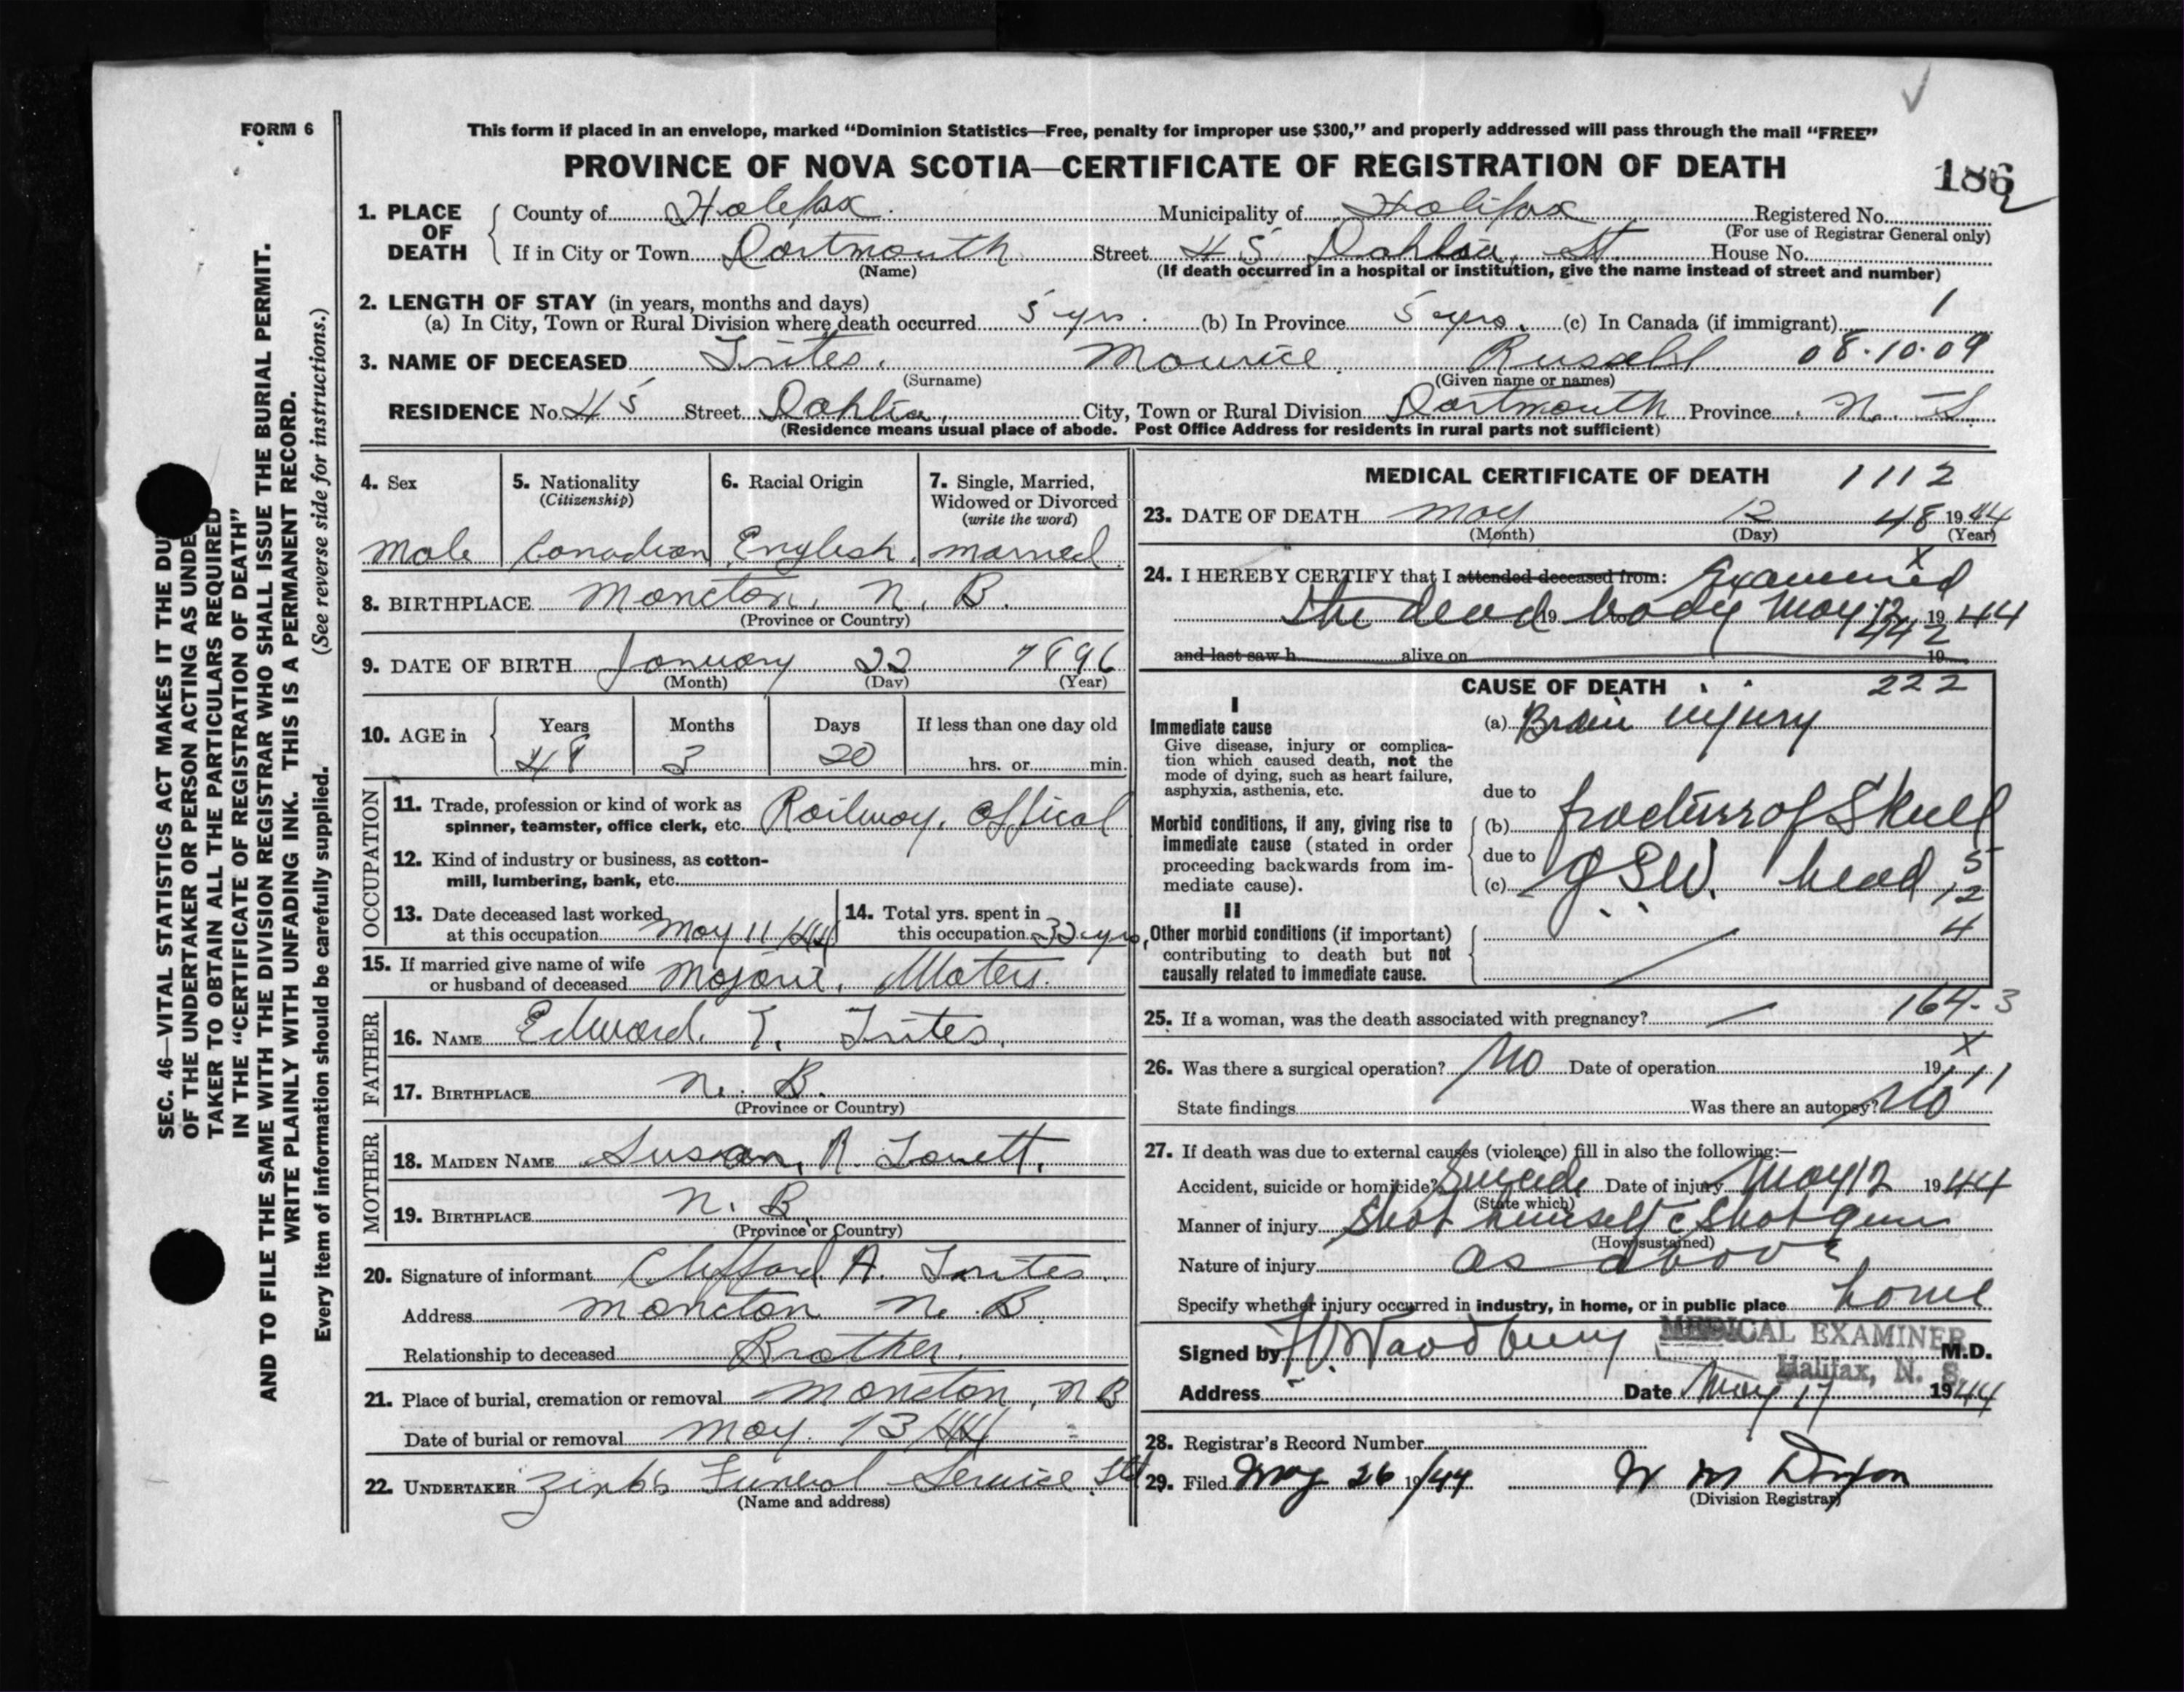 FORM 6
This form if placed in an envelope, marked "Dominion Statistics—Free, penalty for improper use $300," and properly addressed will pass through the mail "FREE"
PROVINCE OF NOVA SCOTIA—CERTIFICATE OF REGISTRATION OF DEATH
186
1. PLACE OF DEATH
County of Halifax Municipality of Halifax Registered No.
(For use of Registrar General only)
If in City or Town Dartmouth Street 45 Dahlia, St. House No.
(Name) (If death occurred in a hospital or institution, give the name instead of street and number)
2. LENGTH OF STAY (in years, months and days) 1
(a) In City, Town or Rural Division where death occurred 5 yrs. (b) In Province 5 yrs. (c) In Canada (if immigrant)
3. NAME OF DECEASED Trites. Maurice Russell 08·10·09
(Surname) (Given name or names)
RESIDENCE No. 45 Street Dahlia, City, Town or Rural Division Dartmouth Province N. S.
(Residence means usual place of abode. Post Office Address for residents in rural parts not sufficient)
4. Sex 5. Nationality (Citizenship) 6. Racial Origin 7. Single, Married, Widowed or Divorced (write the word)
Male Canadian English. married.
8. BIRTHPLACE Moncton, N. B.
(Province or Country)
9. DATE OF BIRTH January 22 1896
(Month) (Day) (Year)
10. AGE in Years Months Days If less than one day old
48 3 20 hrs. or min.
OCCUPATION
11. Trade, profession or kind of work as spinner, teamster, office clerk, etc. Railway. Offical
12. Kind of industry or business, as cotton-mill, lumbering, bank, etc.
13. Date deceased last worked at this occupation May 11/44
14. Total yrs. spent in this occupation 32 yrs.
15. If married give name of wife or husband of deceased Mojorie.
FATHER
16. NAME Edward. T. Trites.
17. BIRTHPLACE N. B.
(Province or Country)
MOTHER
18. MAIDEN NAME Susan. R.
19. BIRTHPLACE N. B.
(Province or Country)
20. Signature of informant Clifford A. Trites.
Address Moncton N. B.
Relationship to deceased Brother.
21. Place of burial, cremation or removal Moncton, N B
Date of burial or removal May. 13/44
22. UNDERTAKER Zink's Funeral Service. Ltd
(Name and address)
MEDICAL CERTIFICATE OF DEATH 1112
23. DATE OF DEATH May 12 48 1944
(Month) (Day) (Year)
24. I HEREBY CERTIFY that I attended deceased from: Examined x
the dead 19 body to May 12 1944
442
and last saw h alive on 19
CAUSE OF DEATH 222
I
Immediate cause
Give disease, injury or complication which caused death, not the mode of dying, such as heart failure, asphyxia, asthenia, etc.
(a) Brain injury
due to
Morbid conditions, if any, giving rise to immediate cause (stated in order proceeding backwards from immediate cause).
(b) fracture of Skull
due to
(c) G.S.W. head 5
12
II
Other morbid conditions (if important) contributing to death but not causally related to immediate cause.
4
164-3
25. If a woman, was the death associated with pregnancy?
26. Was there a surgical operation? No Date of operation 19 x
111
State findings Was there an autopsy? No
27. If death was due to external causes (violence) fill in also the following:—
Accident, suicide or homicide? Suicide Date of injury May 12 1944
(State which)
Manner of injury Shot himself c Shotgun
(How sustained)
Nature of injury as above
Specify whether injury occurred in industry, in home, or in public place home
Signed by Woodbury MEDICAL EXAMINER M.D.
Halifax, N. S.
Address Date May 17 1944
28. Registrar's Record Number
29. Filed May 26 19/44 W M
(Division Registrar)
SEC. 46—VITAL STATISTICS ACT MAKES IT THE DU
OF THE UNDERTAKER OR PERSON ACTING AS UNDE
TAKER TO OBTAIN ALL THE PARTICULARS REQUIRED
IN THE "CERTIFICATE OF REGISTRATION OF DEATH"
AND TO FILE THE SAME WITH THE DIVISION REGISTRAR WHO SHALL ISSUE THE BURIAL PERMIT.
WRITE PLAINLY WITH UNFADING INK. THIS IS A PERMANENT RECORD.
Every item of information should be carefully supplied. (See reverse side for instructions.)